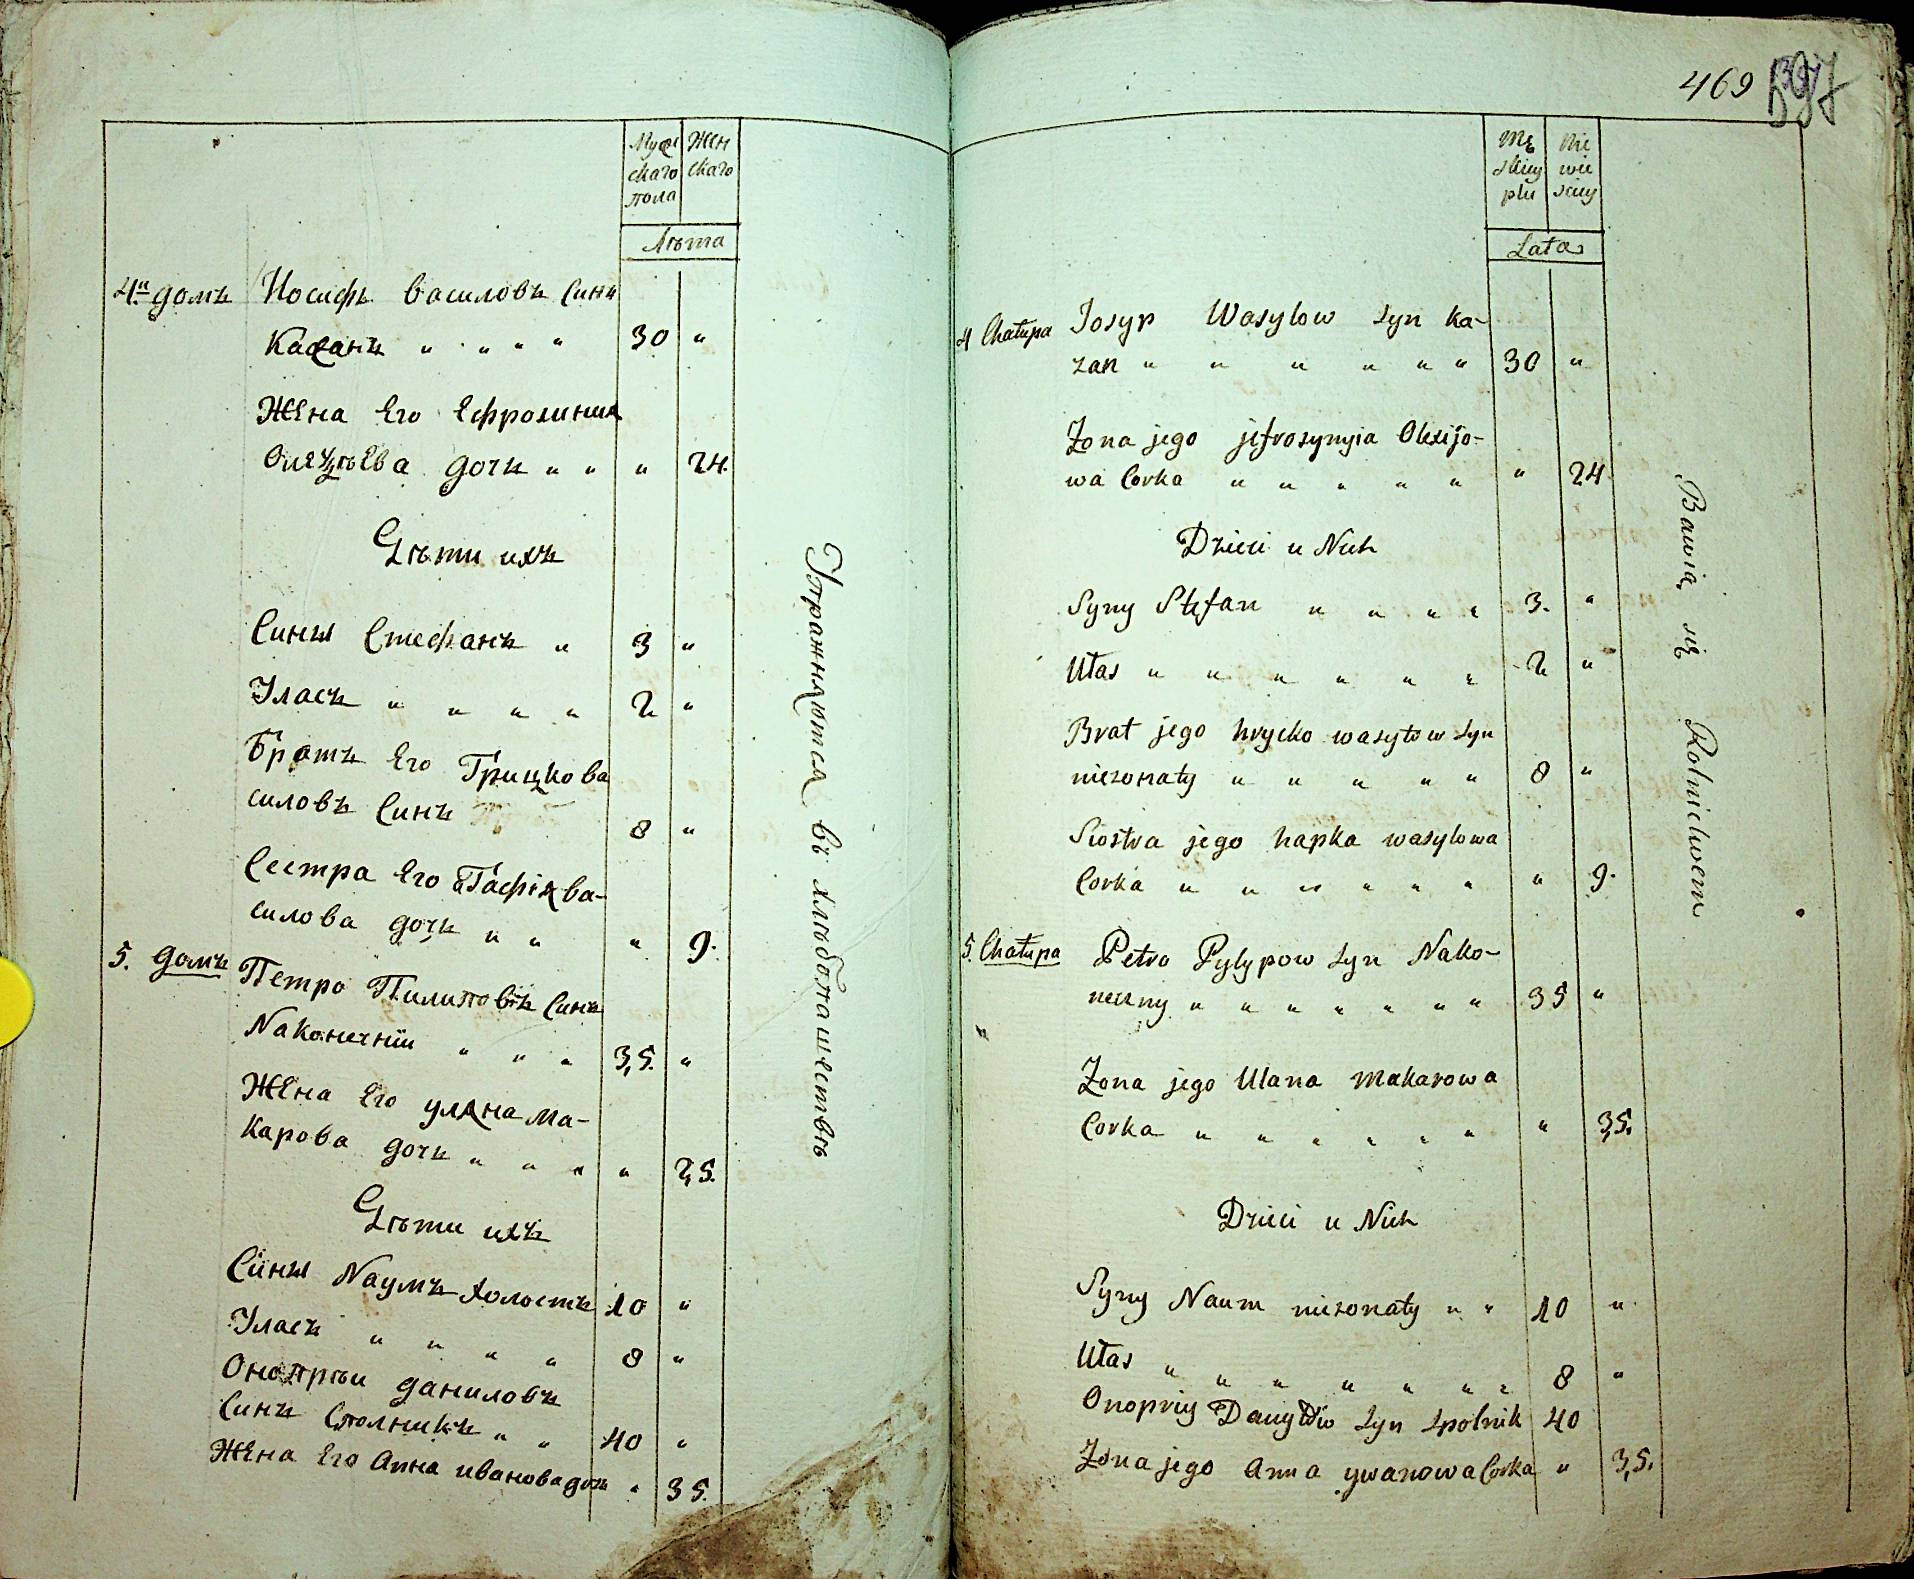 Муже Жен
скаго скаго
пола
Лѣта
4й домъ Иосифъ василовъ Синъ
Казанъ " " " " 30 "
Жена Его Ефросиния
Олеѯѣева дочъ " " " 24.
Дѣти ихъ
Сины Стефанъ " 3 "
Уласъ " " " " 2 "
Братъ Его Грицко ва
силовъ Синъ 8 "
Сестра Его Гафія ва-
силова дочъ " " " 9.
5. домъ Петро Пилиповъ Синъ
Nаконечнїи " " " 35. "
Жена Его уляна ма-
карова дочъ " " " " 25.
Дѣти ихъ
Сины Nаумъ холостъ 10 "
Уласъ " " " " 8 "
Онопрѣи даниловъ
Синъ Сполникъ " " 40 "
Жена Его Анна иванова дочъ " 35.
Упражняются въ хлѣбопашествѣ
469 397
Mę Nie
skiey wie
płci sciey
Lata
4 Chałupa Josyp Wasylow Syn Ka-
zan " " " " " " 30 "
Zona jego jefrosynyia Olexijo-
wa Corka " " " " " " 24
Dzieci u Nich
Syny Stefan " " " " 3. "
Ułas " " " " " " 2 "
Brat jego hrycko wasylow Syn
niezonaty " " " " " 8 "
Siostra jego hapka wasylowa
Corka " " " " " " " 9.
5. Chałupa Petro Pylypow Syn Nako-
neczny " " " " " " " 35 "
Zona jego Ulana Makarowa
Corka " " " " " " " 35.
Dzieci u Nich
Syny Naum niezonaty " " 10 "
Ułas " " " " " " " 8 "
Onopriy Danyłow Syn Spolnik 40
Zona jego Anna ywanowa Corka " 35.
Bawią się Rolnictwem